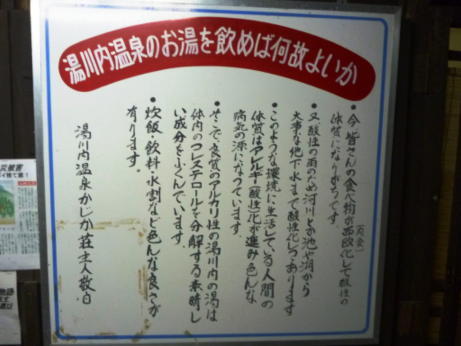 湯川内温泉のお湯を飲めば何故よいか
•今、皆さんの食べ物が西欧化して酸性の
(肉食)
体質になりがちです。
•又酸性の雨のため河川とか池や沼から
大事な地下水まで酸性化しつゝあります
•このような環境に生活している人間の
体質はアレルギー酸性化が進み色んな
病気の源になっています。
•そこで良質のアルカリ性の湯川内の湯は
体内のコレステロールを分解する素晴し
い成分をふくんでいます。
•炊飯、飲料・水割など色んな良さが
有ります。
湯川内温泉かじか荘主人敬白